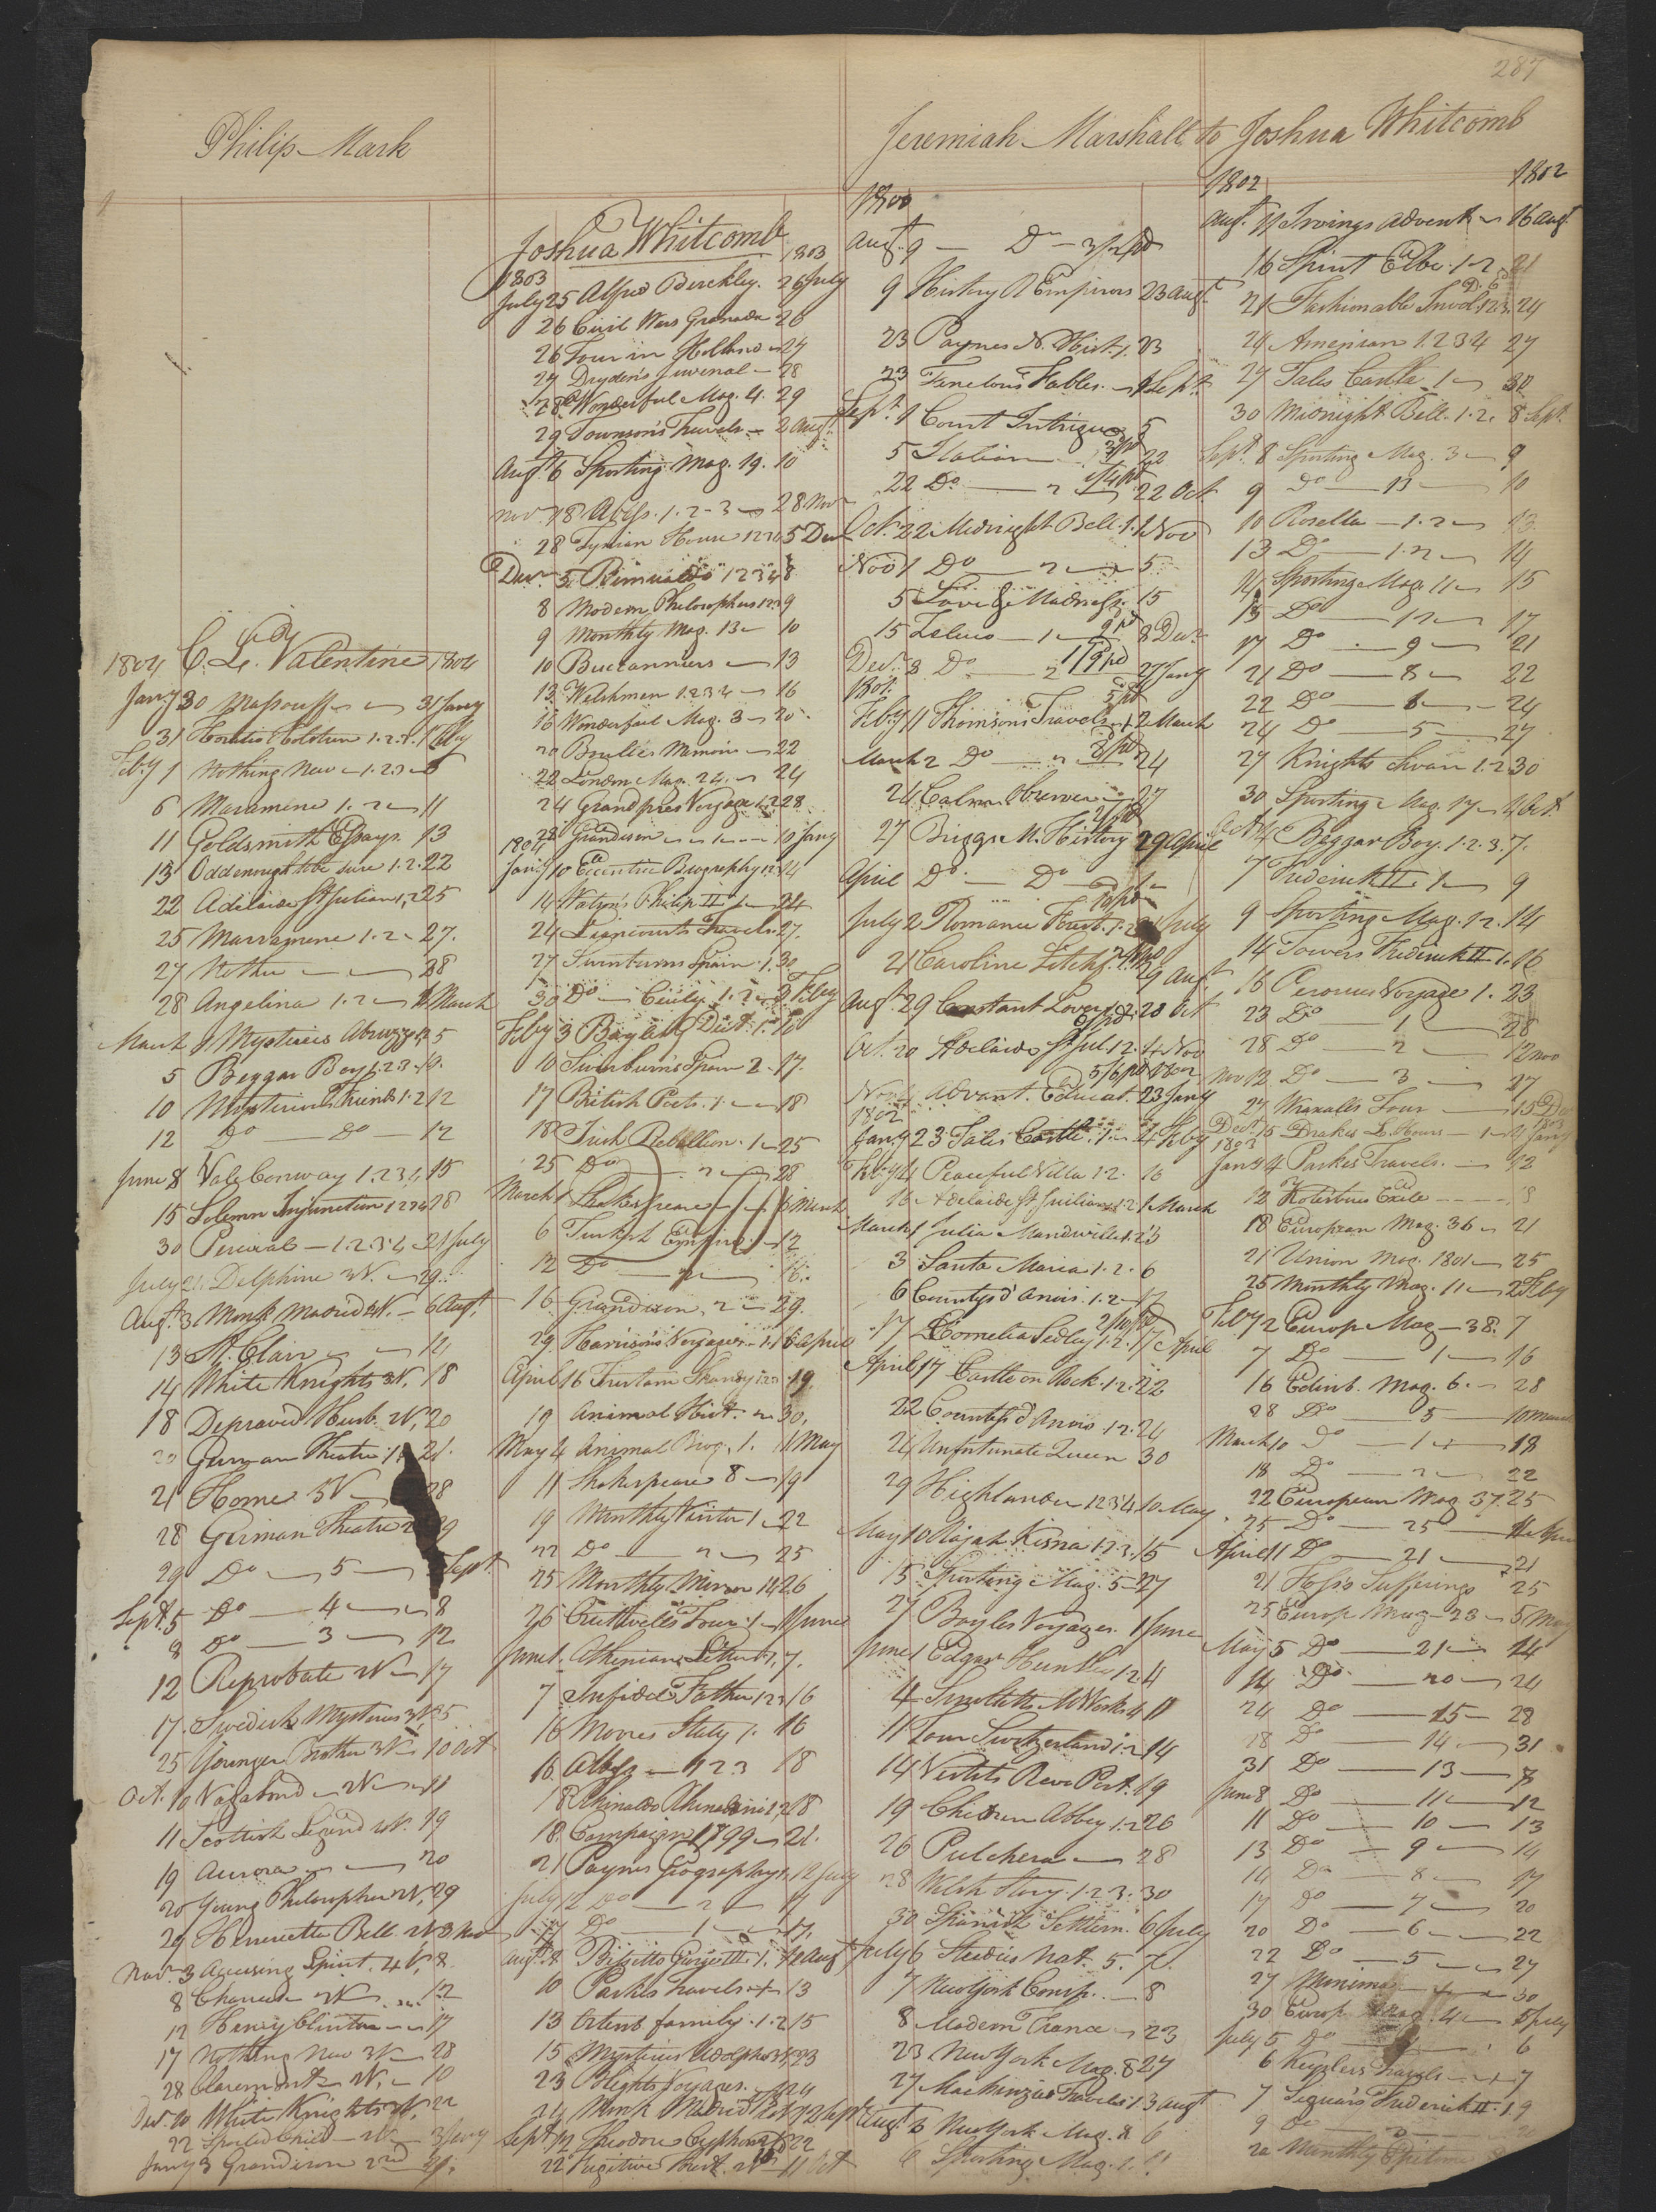 287
Philip Mark
Jeremiah Marshall to Joshua Whitcomb
C. Lady Valentine
1804 1804
Jany 30 31 Jany
31 Horatio Holstein 1.2.3.
Feby 1 Nothing New 1.2.3
6 Maramene 1. 2 11
11 Goldsmith Essays 13
13 Odd enough to be sure 1.2 22
22 Adelaide St Julian 1.2 25
25 Marramene 1. 2 27.
27 28
28 Angelina 1. 2 March
March 1 Mysteries Abruzzo 5
5 Beggar Boy 1.2.3. 10.
10 Mysterious Friend 1.2 12
12 Do Do 12
June 8 Vale Conway 1.2.3.4 15
15 Solemn Injunction 1 2 3 4 28
30 Percival 1.2.3.4 21 July
July 21 Delphine 3V. 29
Augt. 3 Monk Madrid V. 6 Augt.
13 St. Clair 14
14 White Knights 3V. 18
18 Depraved Husb. 2V. 20
20 German Theatre 1 21.
21 Home 5V 28
28 German Theatre 2 29
29 Do 5 Sept.
Sept. 5 Do 4 8
8 Do 3 12
12 Reprobate 2V 17
17 Swedish Mysteries 3V 25
25 Younger Brother 3V 10 Oct
Oct. 10 Vagabond 2V 11
11 Scottish Legend 4V. 19
19 Aurora 20
20 Young Philosopher 2V. 29
29 Henrietta Bell. 2V 3 Nov
Nov. 3 Accusing Spirit. 4V. 8.
8 2V 12
12 Henry Clinton 17
17 Nothing New 3V 28
28 Claremont 2V. 10
Dec. 10 White Knights 3V. 22
22 Spoiled Child 2V 3 Jany
Jany 3 Grandison 2nd
Joshua Whitcomb
1803 1803
July 25 Alfred Berckley. 26 July
26 Civil Wars Granada 26
26 Tour in Holland 27
27 Dryden's Juvenal 28
28 Wonderful Mag. 4. 29
29 Townson's Travels 2 Augt.
Augt. 6 Sporting Mag. 19. 10
Nov. 18 Abess. 1. 2 - 3 28 Nov
28 Tyrian House 5 Decr
Decr. 5 Rimualdo 1 2 3 4 8
8 Modern Philosophers 1 2 3 9
9 Monthly Mag. 13 10
10 Buccanniers 13
13 Welshmen 1.2.3.4 16
16 Wonderful Mag. 3 20
20 Memoirs 22
22 London Mag. 24. 24
24 Grandpres Voyage 1.2 28
28 Grandison 10 Jany
1804
Jany 10 Eccentric Biography 14
14 Watson's Philip II 1 24
24 Liancourt's Travels. 27.
27 Swinburns Spain. 1. 30
30 Do Cicily 1.2 3 Feby
Feby 3 Bayley's Dict. 1. 10
10 Swinburn's Spain 2 17.
17 British Poets. 1. 18
18 Irish Rebellion. 1 25
25 Do 2 28
March 1 Shakespeare 1 6 March
6 Turkish Empire 1 12
12 Do 2 16
16 Grandison 2 29.
29 Harrison's Voyages 1. 16 April
April 16 Tristam Shandy 1 2 3 19.
19 Animal Hist. 30.
May 4 Animal Biog. 1. 11 May
11 Shakespeare 8 19
19 Monthly Visitor 1 22
22 Do 2 25
25 Monthly Mirror 14 26
26 Cruttwells Tour 1 1 June
June 1. Athenian Letters 1. 7.
7 Infidel Father 1 2 3 16
16 Moores Italy 1. 16
16 Abbess 1 2 3 18
18 Rhinaldo Rhinaldini 1.2 18
18 Campaign 1799 21.
21 Paynes Geography 1. 12 July
July 12 Do 2 17
17 Do 1 17.
Augt. 2 Bissetts George III. 1. 10 Augt
10 Parks travels 13
13 Ortenb family. 1.2 15
15 Mysteries Udolpho 3V. 23
23 Blights Voyages. 24
24 Monk Madrid 12 Sept
Sept. 12 Theodore Cyphon 22
22 Fugitive 2V 11 Oct
1800
Augt. 9 Do 3/ pd
9 History R Emperors 23 Augt.
23 Paynes N. Hist. 1. 23
23 Fanelons Fables. 1 Sept.
Sept. 1 Court Intrigue 5
5 Italian 22
22 Do 2 22 Oct
Oct. 22 Midnight Bell. 1. 1 Nov
Nov 1 Do 2 5
5 Love & Madness. 15
15 Zeluco 1 8 Decr
Decr. 8 Do 2 27 Jany
1801.
Feby 11 Thomson's Travels 1 2 March
March 2 Do 2 24
24 Calm Observer 27
27 Briggs N. History 29 April
April Do Do
July 2 Romance Forest. 1.2 July
21 Caroline Litchf. 9 Augt.
Augt. 29 Constant Lover 1.2. 20 Oct
Oct. 20 Adelaide St Jul. 1.2. 4 Nov
5/6 pd
Nov 4 Advant. Educat. 23 Jany
1802
Jany 23 Tales Castle. 1 4 Feby
Feby 4 Peaceful Villa 1.2. 16
16 Adelaide St Juilian 1.2. 1 March
March 1 Julia Mandeville 1.2 3
3 Santa Maria 1.2. 6
6 Countess d'Anois. 1. 2 17
17 Cornelia Sedley 1.2. 17 April
April 17 Castle on Rock. 1.2. 22
22 Countess d'Anois 1.2. 24
24 Unfortunate Queen 30
29 Highlander 1 2 3 4 10 May
May 10 Rajah Kisna 1.2.3. 15
15 Sporting Mag. 5 27
27 Boyles Voyages. 1 June
June 1 Edgar Huntley 1.2 4
4 Smolletts M Works 4 11
11 Tour Switzerland 1.2 14
14 19
19 Children Abbey 1.2 26
26 Pulchera 28
28 Welsh Story. 1. 2. 3. 30
30 Spanish Settlem. 6 July
July 6 Studies Nat. 5. 7.
7 New York Consp. 8
8 Modern France 23
23 New York Mag. 8 27
27 Mackinzies Travels 1 3 Augt
Augt. 3 New York Mag. 8 6
6 Sporting Mag. 1.
1802 1802
Augt. 11 Irvings Advent. 16 Augt
16 Spirit Elbe. 1. 2. 21
21 Fashionable Invol. 1 2 3. 24
24 Amenian 1.2 3 4 27
27 Tales Castle 1 30
30 Midnight Bell. 1. 2. 8 Sept.
Sept. 8 Sporting Mag. 3 9
9 Do 13 10
10 Rosella 1. 2 13
13 Do 1. 2 14
14 Sporting Mag. 11 15
15 Do 12 17
17 Do 9 21
21 Do 8 22
22 Do 24
24 Do 5 27
27 Knights Swan 1.2 30
30 Sporting Mag. 17 4 Oct.
Oct. 4 Beggar Boy. 1. 2. 3. 7.
7 Frederick II. 1 9
9 Sporting Mag. 12. 14
14 Towers Frederick II 1. 16
16 Perouse Voyage 1. 23
23 Do 1 28
28 Do 2 12 Nov
Nov 12. Do 3 27
27 Wraxalls Tour 15 Dec
Decr. 15 Drakes L. Hours 1 4 Jany
1803
Jany 4 Parkes Travels. 12
12 Kotzebues Exile
18 European Mag. 36 21
21 Union Mag. 1801 25
25 Monthly Mag. 11 2 Feby
Feby 2 Europ Mag 38. 7
7 Do 1 16
16 Edinb. Mag. 6. 28
28 Do 5 10 March
March 10 Do 1 18
18 Do 2 22
22 European Mag 37. 25
25 Do 25 11 Apr
April 11 Do 21 21
21 Fosses Sufferings 25
25 Europ Mag 23 5 May
May 5 Do 21 14
14 Do 20 24
24 Do 15 28
28 Do 14 31
31 Do 13 8
June 8 Do 11 12
11 Do 10 13
13 Do 9 14
14 Do 8 17
17 Do 7 20
20 Do 6 22
22 Do 5 27
27 30
30 Europ Mag. 4 5 July
July 5 Do 6
6 Keyslers Travels 7
7 Segurs Frederick II. 1. 9
9 Do 20
20 Monthly Epitome